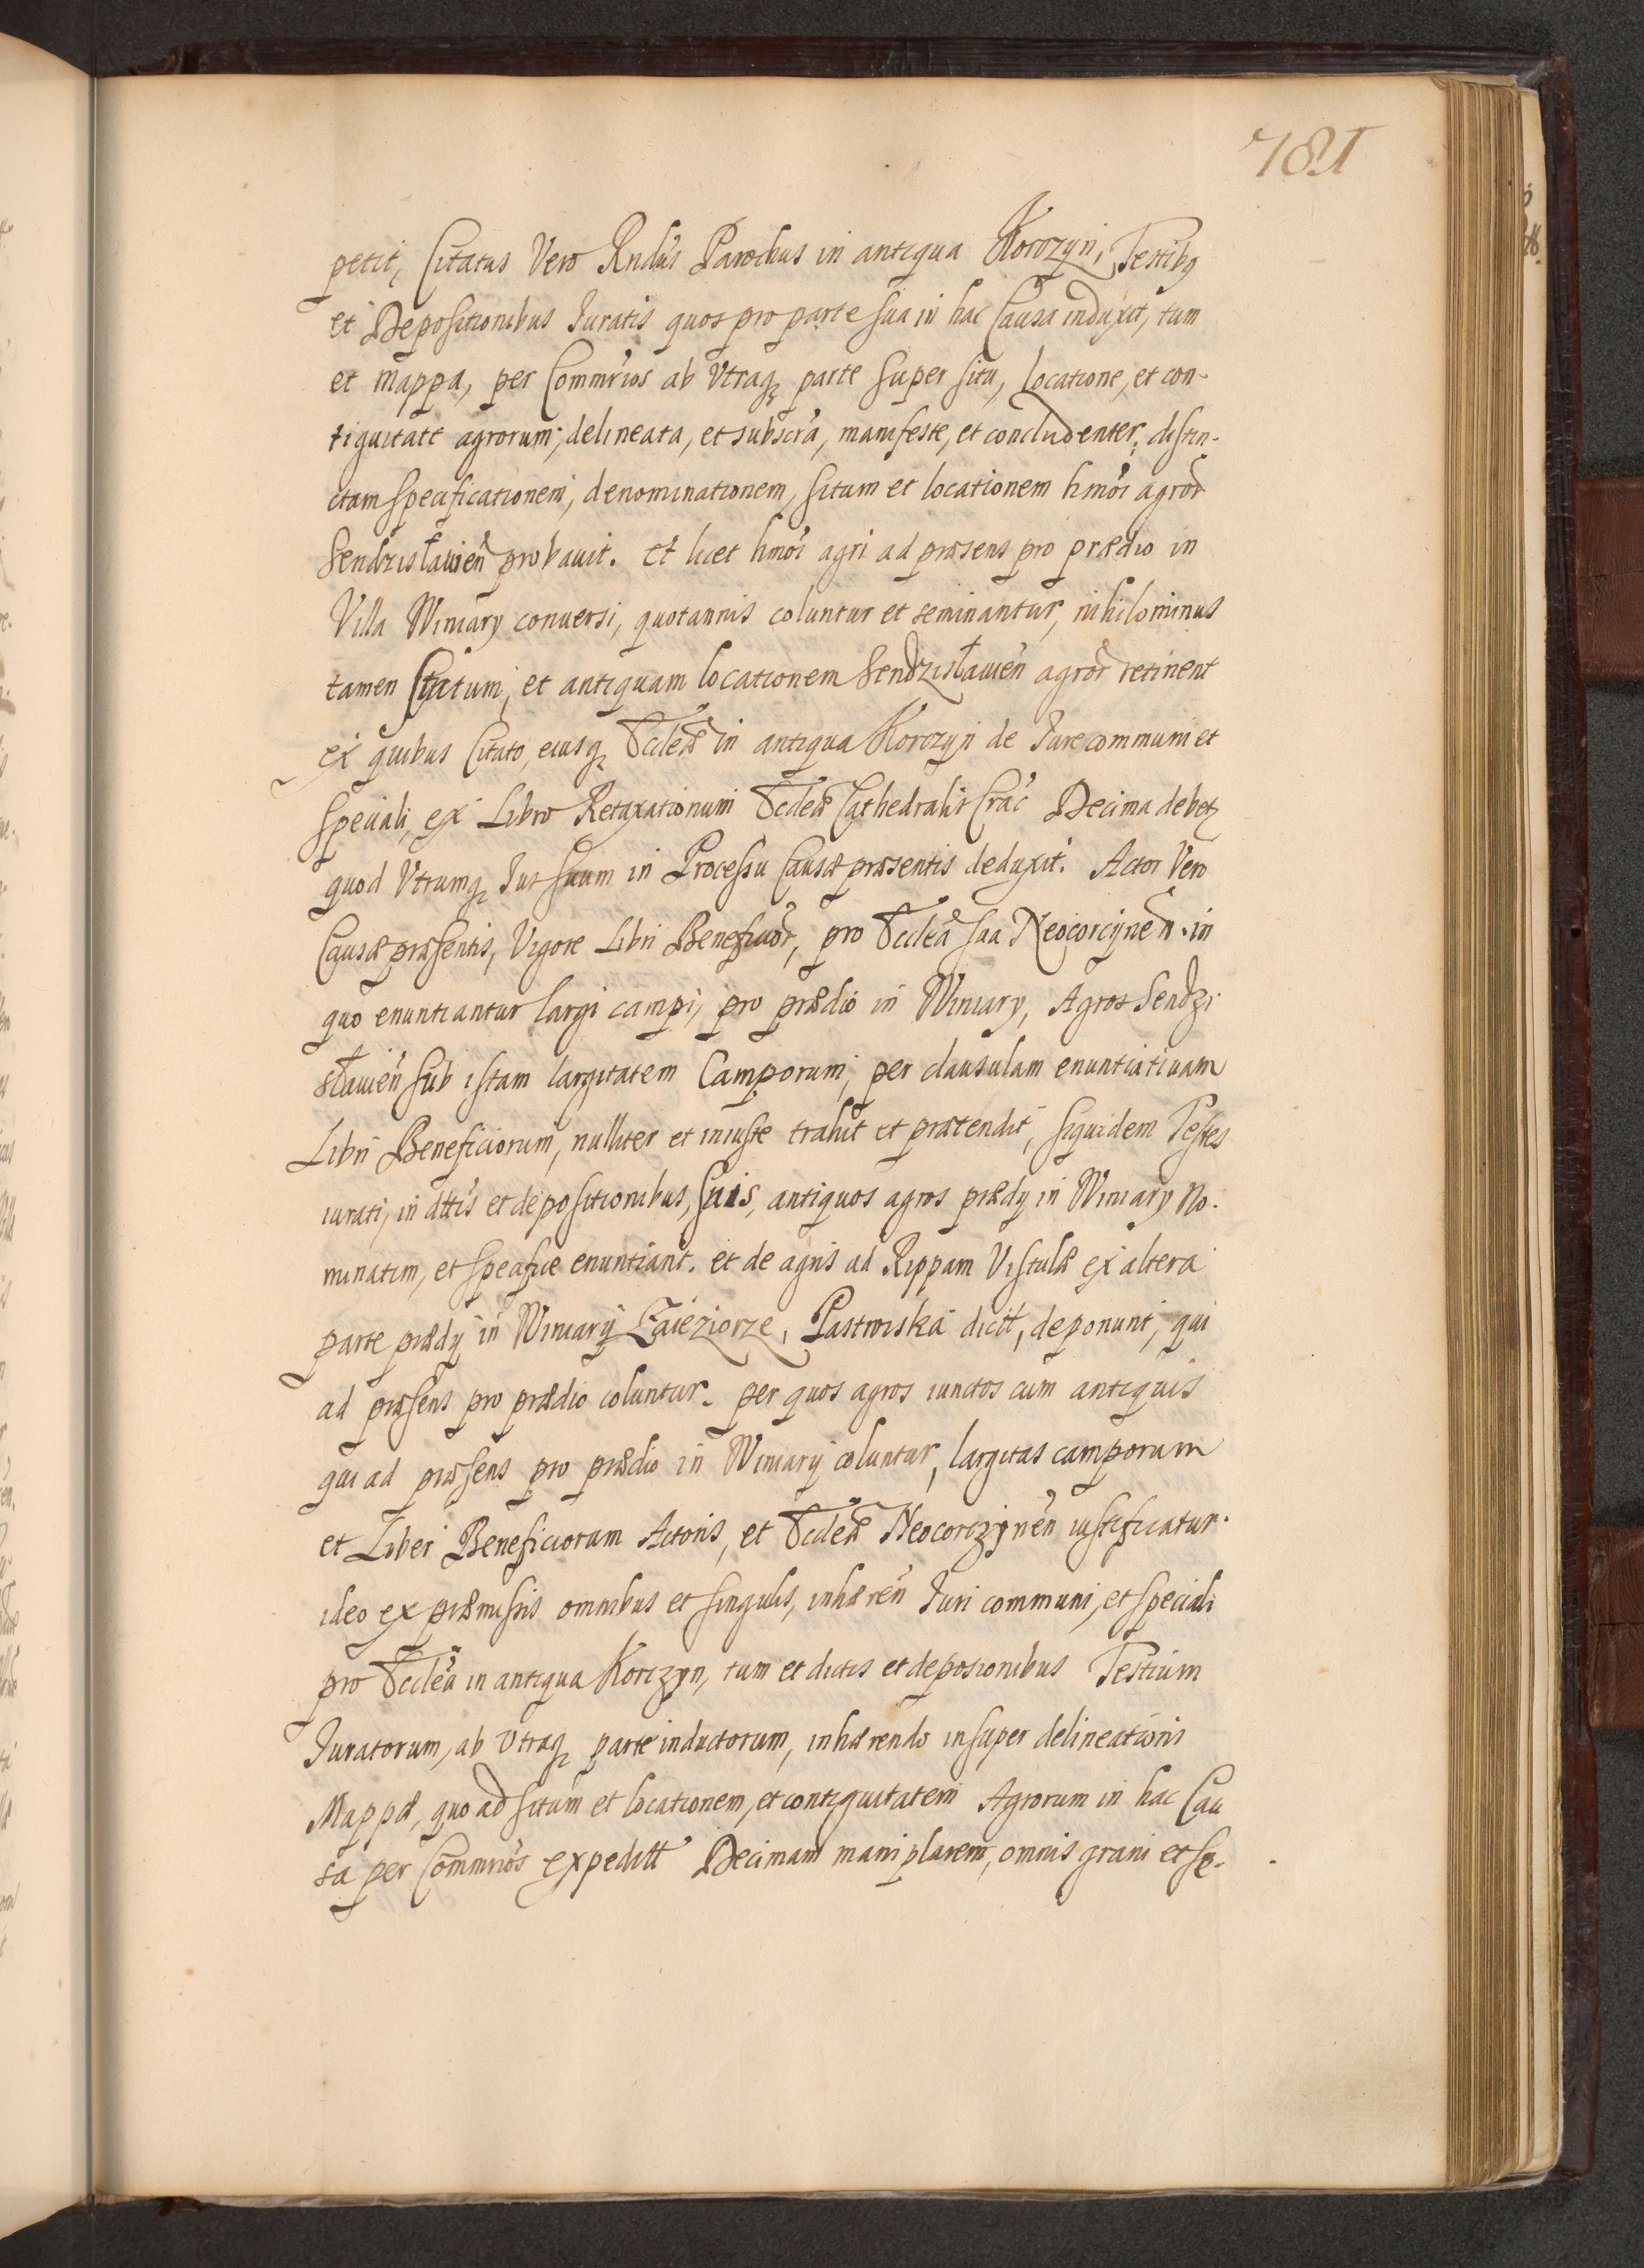 781
petit, Citatus Vero Rndus Parochus in antiqua Korczyn, Testibq
et Depositionibus Iuratis quos pro parte sua in hac Causa induxit, tum
et mappa, per Commrios ab Vtraq parte super situ, Locatione, et con-
tiguitate agrorum, delineata, et subscra, manifeste, et concludenter, distin-
ctam specificationem, denominationem, situm et locationem hmoi agror
Sendzisławien probauit. Et licet hmoi agri ad præsens pro prædio in
Villa Winiary conuersi, quotannis coluntur et seminantur, nihilominus
tamen Situm, et antiquam locationem Sendzisławien agror retinent
ex quibus Citato, eiusq Eccleæ in antiqua Korczyn de Iure communi et
speciali, ex Libro Retaxationum Eccleæ Cathedralis Crac Decima debetz
quod Vtrumq Ius suum in Processu Causæ præsentis deduxit. Actor Vero
Causæ præsentis, Vigore Libri Beneficior, pro Ecclea sua Neocorcynen. in
quo enuntiantur largi campi, pro prædio in Winiary, Agros Sendzi-
sławien sub istam largitatem Camporum, per clausulam enuntiatiuam
Libri Beneficiorum, nulliter et iniuste trahit et prætendit, siquidem Testes
iurati, in dttis et depositionibus, suis, antiquos agros prædy in Winiary No-
minatim, et specifice enuntiant. et de agris ad Rippam Vistulæ ex altera
parte prædy in Winiary Zaieziorze, Pastwiska dictt, deponunt, qui
ad præsens pro prædio coluntur. per quos agros iunctos cum antiquis
qui ad præsens pro prædio in Winiary coluntur, largitas camporum
et Liber Beneficiorum Actoris, et Eccleæ Neocorczynen iustificatur.
ideo ex præmissis omnibus et singulis, inhæren Iuri communi, et speciali
pro Ecclea in antiqua Korczyn, tum et dictis et deposionibus Testium
Iuratorum, ab Vtraq parte inductorum, inhærendo insuper delineationi
Mappæ, quo ad situm et locationem, et contiguitatem Agrorum in hac Cau
sa per Commrios expeditt Decimam maniplarem, omnis grani et se-